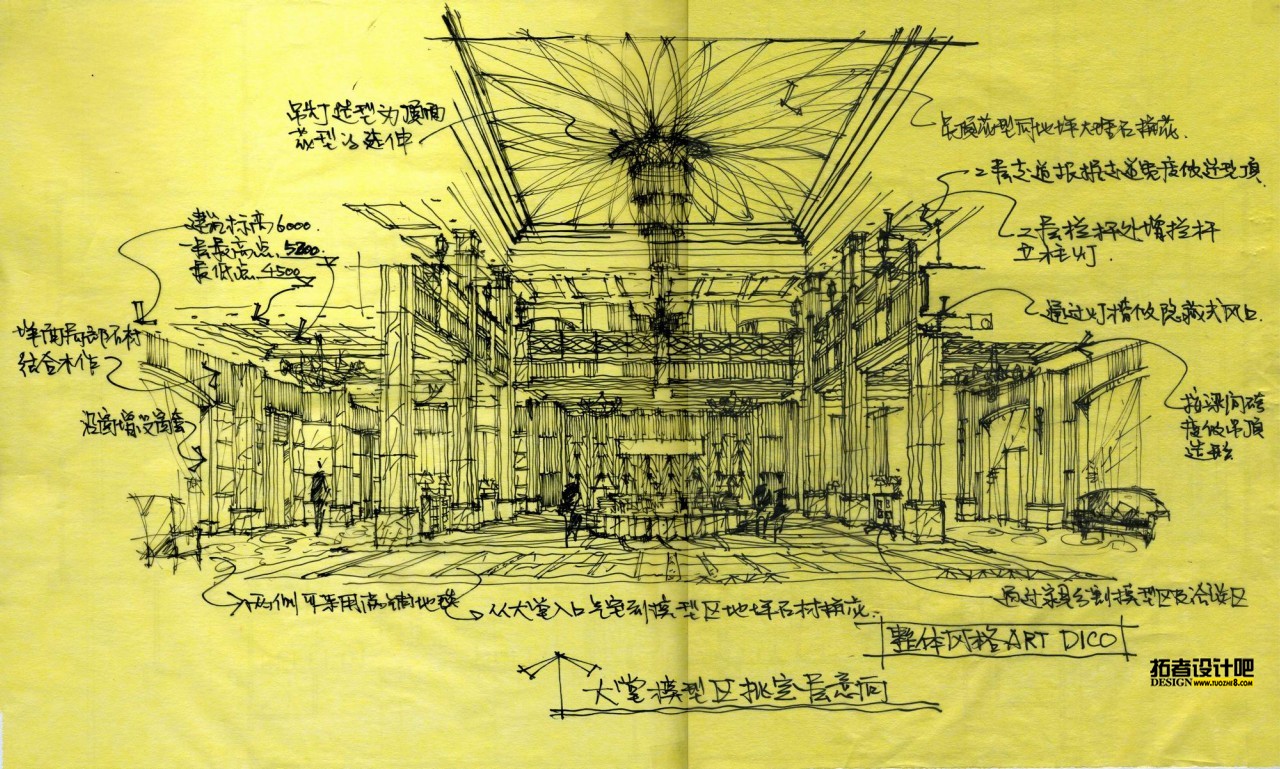 吊灯造型为顶面
花型的延伸
吊顶花型同地坪大理石拼花.
2层走道根据走道宽度做造型顶
建筑标高6000.
一层最高点.5200.
最低点.4500
二层栏杆处增栏杆
立柱灯.
通过灯槽做隐藏式风口.
墙面局部石材
结合木作
沿窗增设窗套
按梁间跨
度做吊顶
造型
两侧可采用满铺地毯
从大堂入口贯穿到模型区地坪石材拼花.
通过家具分割模型区及洽谈区
整体风格ART DICO
大堂模型区挑空层意向
拓者设计吧
DESIGN WWW.TUOZHE8.COM